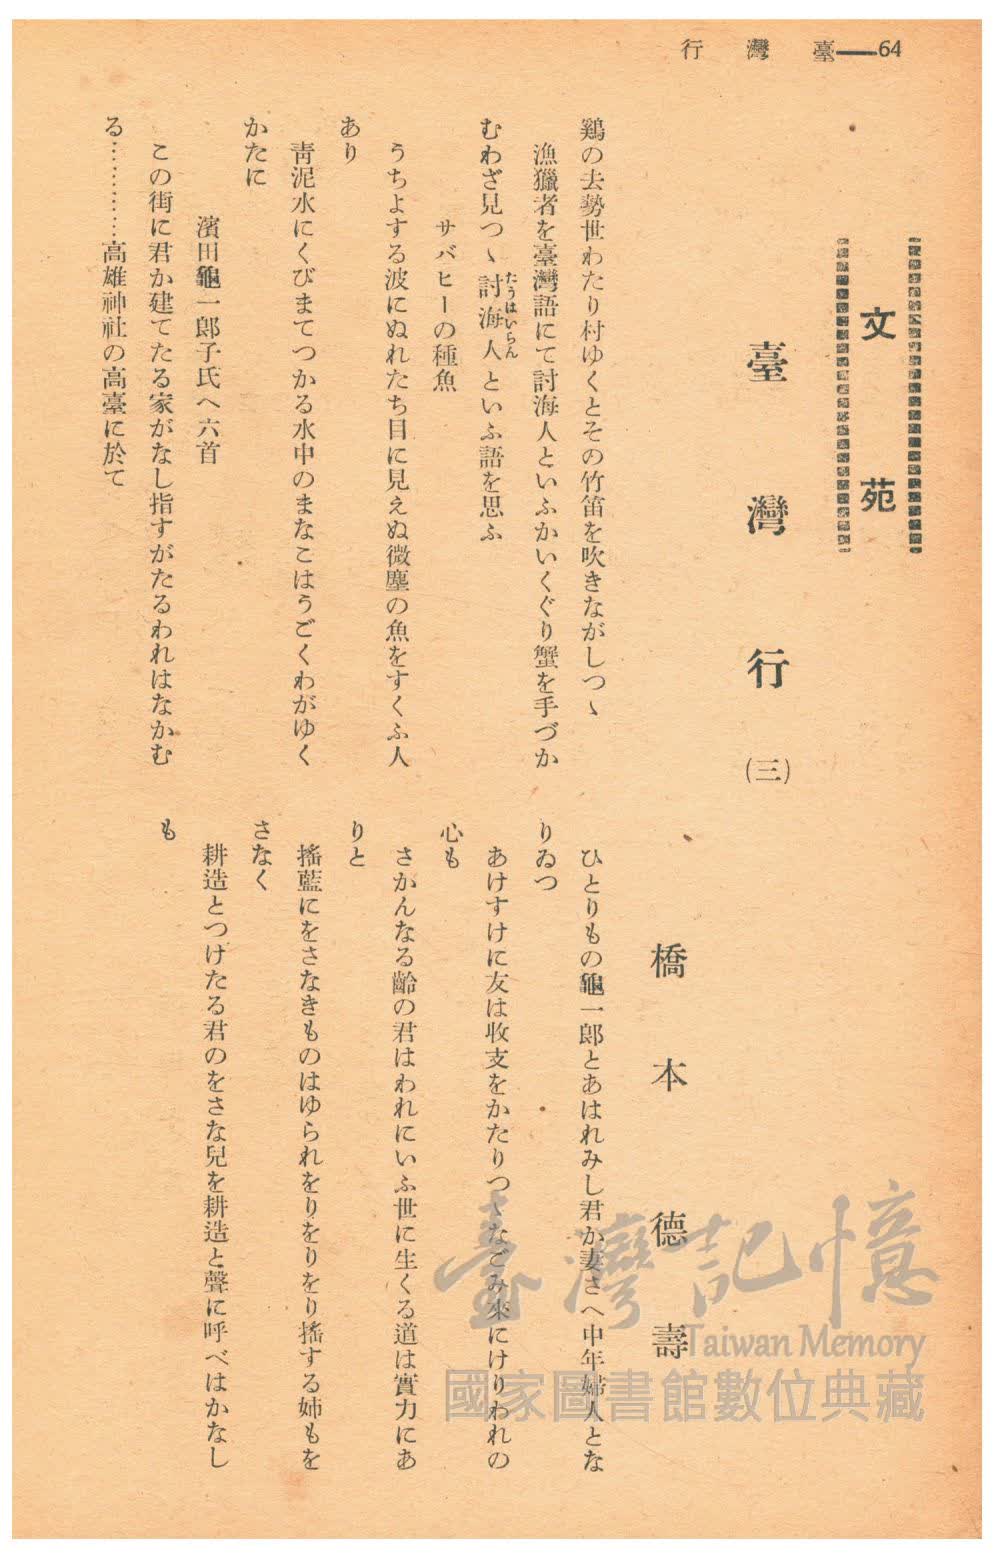 臺灣行——64
文苑
臺灣行(三)
橋本德壽
鷄の去勢世わたり村ゆくとその竹笛を吹きながしつゝ
漁獵者を臺灣語にて討海人といふかいくぐり蟹を手づか
むわざ見つゝ討海人といふ語を思ふ
たうはいらん
サバヒーの種魚
うちよする波にぬれたち目に見えぬ微塵の魚をすくふ人
あり
靑泥水にくびまてつかる水中のまなこはうごくわがゆく
かたに
濱田龜一郎子氏へ六首
この街に君か建てたる家がなし指すがたるわれはなかむ
る…………高雄神社の高臺に於て
ひとりもの龜一郎とあはれみし君か妻さへ中年婦人とな
りゐつ
あけすけに友は收支をかたりつゝなごみ來にけりわれの
心も
さかんなる齡の君はわれにいふ世に生くる道は實力にあ
りと
搖藍にをさなきものはゆられをりをりをり搖する姉もを
さなく
耕造とつけたる君のをさな兒を耕造と聲に呼べはかなし
も
臺灣記憶
Taiwan Memory
國家圖書館數位典藏